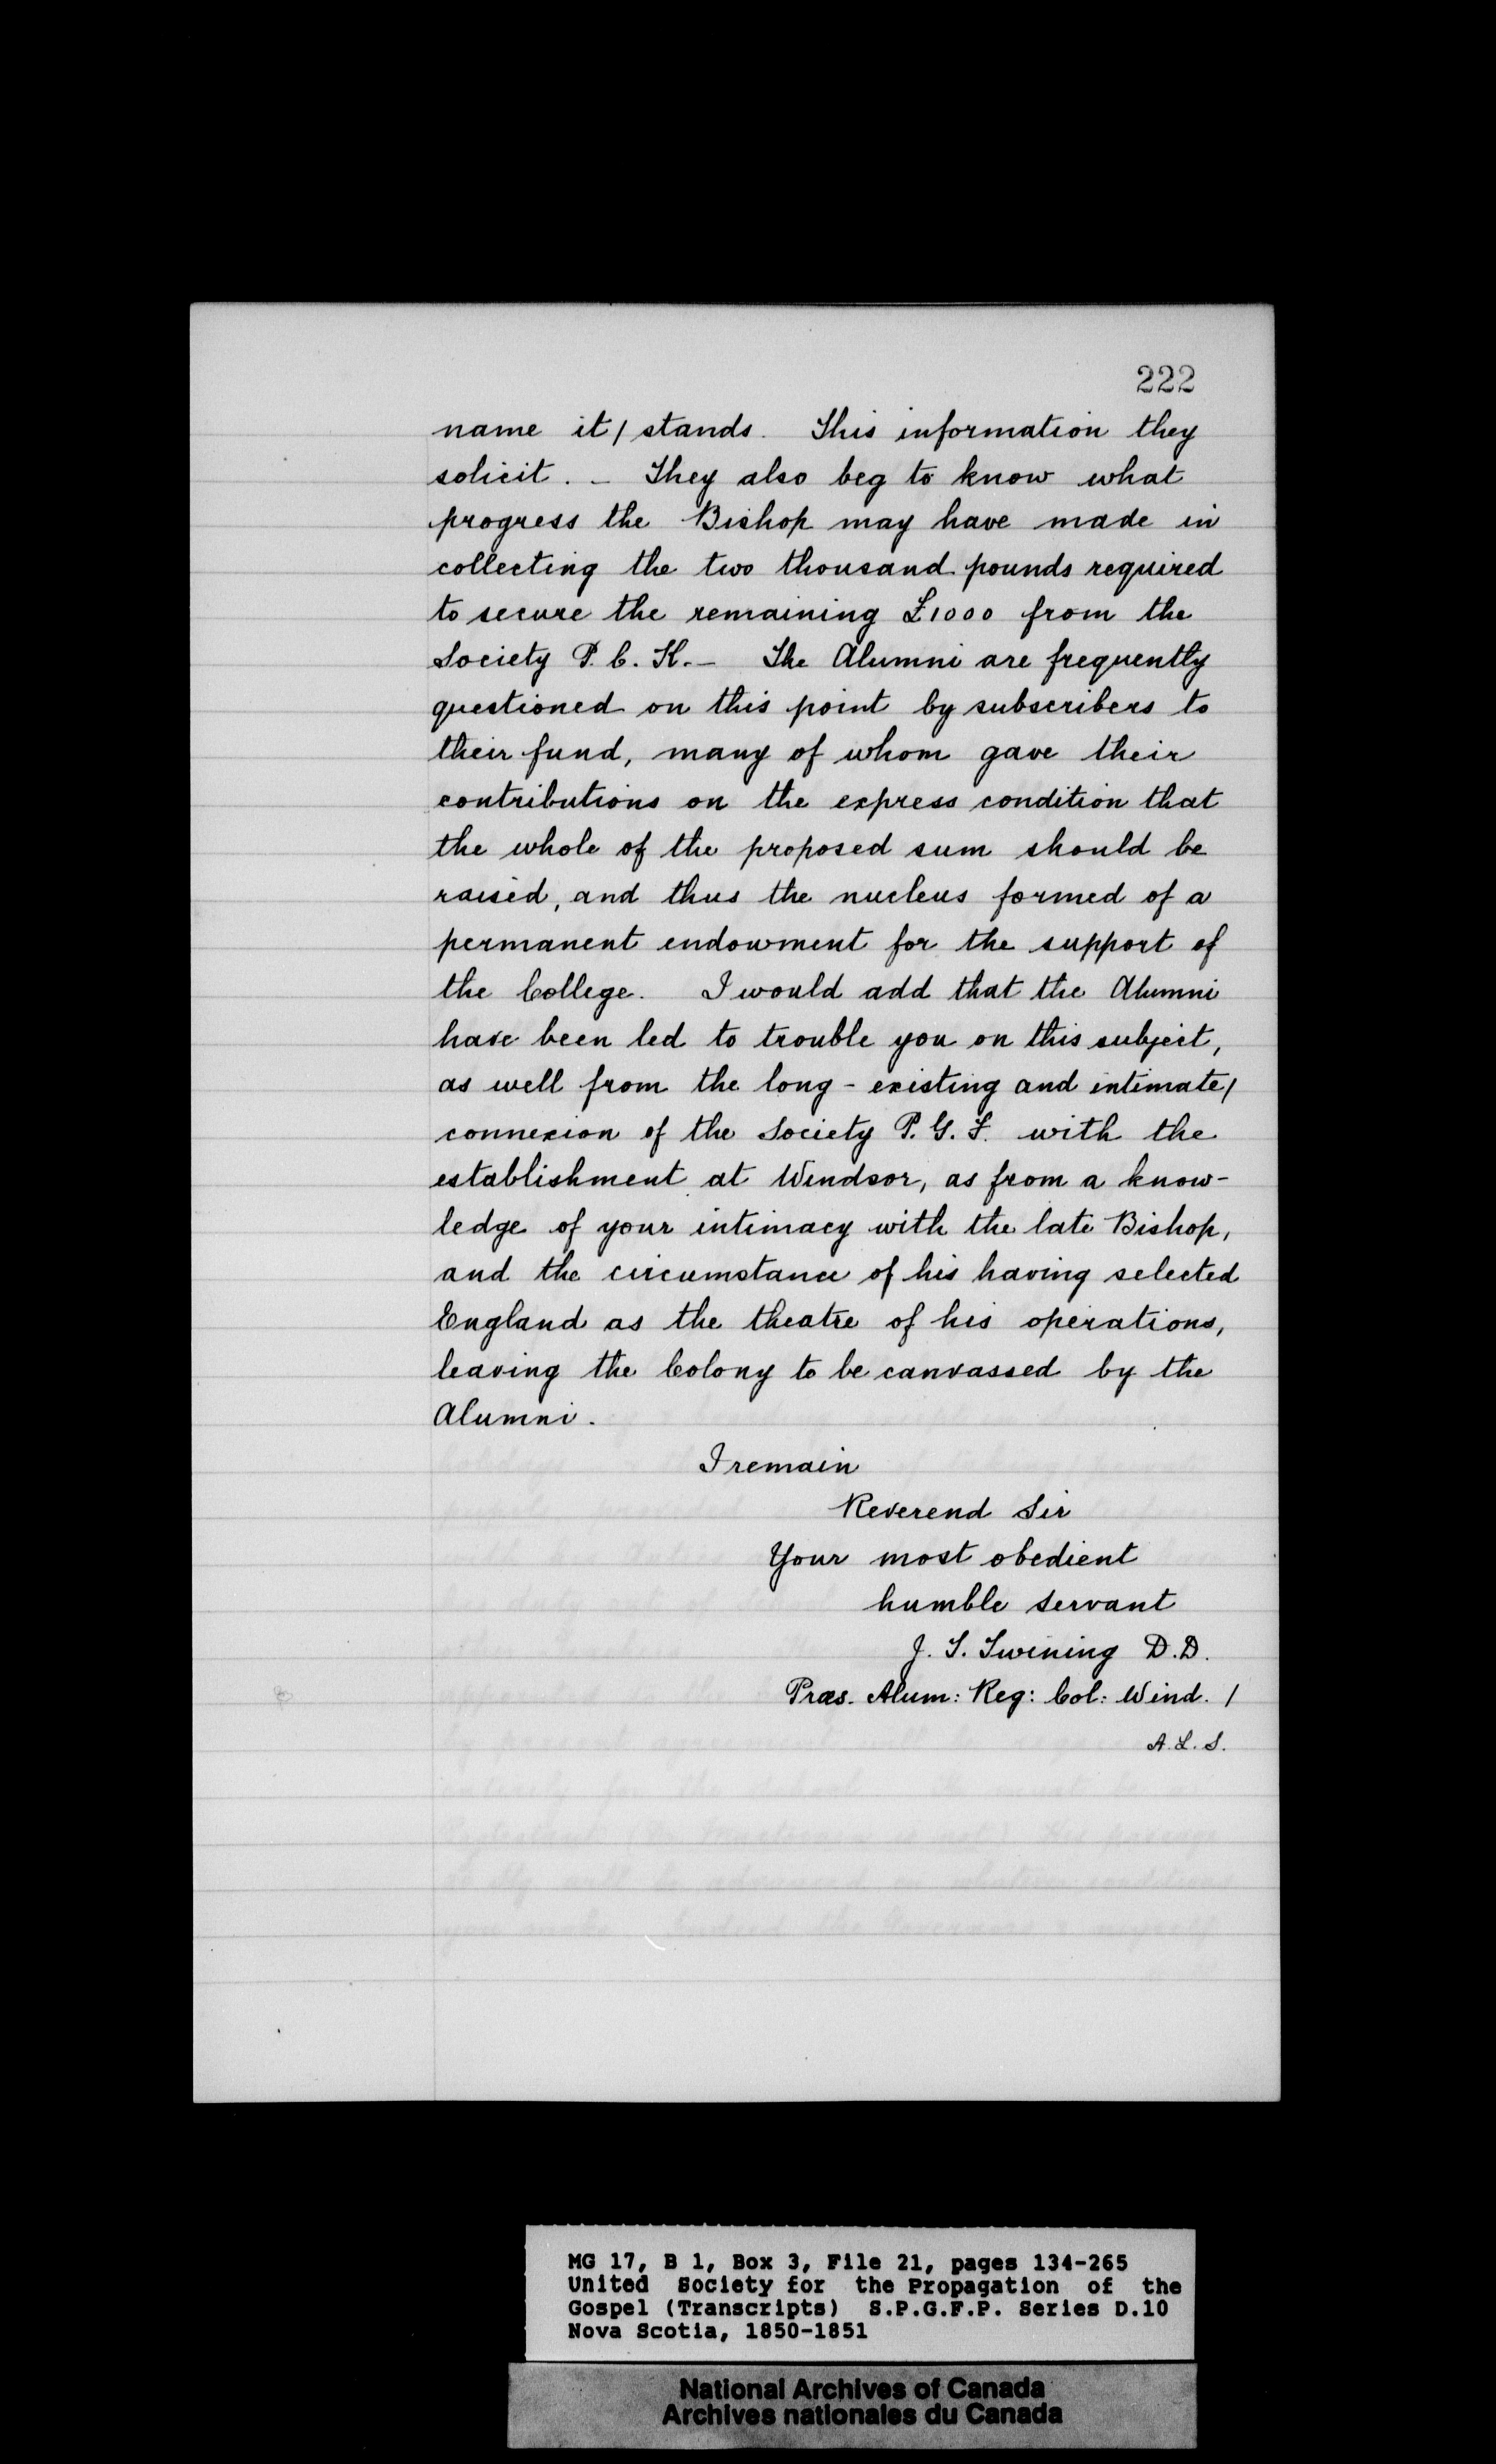 222
name it / stands. This information they
solicit. - They also beg to know what
progress the Bishop may have made in
collecting the two thousand pounds required
to secure the remaining £1000 from the
Society P. C. K. - The Alumni are frequently
questioned on this point by subscribers to
their fund, many of whom gave their
contributions on the express condition that
the whole of the proposed sum should be
raised, and thus the nucleus formed of a
permanent endowment for the support of
the College. I would add that the Alumni
have been led to trouble you on this subject,
as well from the long-existing and intimate /
connexion of the Society P. G. F. with the
establishment at Windsor, as from a know-
ledge of your intimacy with the late Bishop,
and the circumstance of his having selected
England as the theatre of his operations,
leaving the Colony to be canvassed by the
Alumni.
I remain
Reverend Sir
Your most obedient
humble servant
J. T. Twining D.D.
Præs. Alum: Reg: Col: Wind. /
A. L. S.
MG 17, B 1, Box 3, File 21, pages 134-265
United Society for the Propagation of the
Gospel (Transcripts) S.P.G.F.P. Series D.10
Nova Scotia, 1850-1851
National Archives of Canada
Archives nationales du Canada